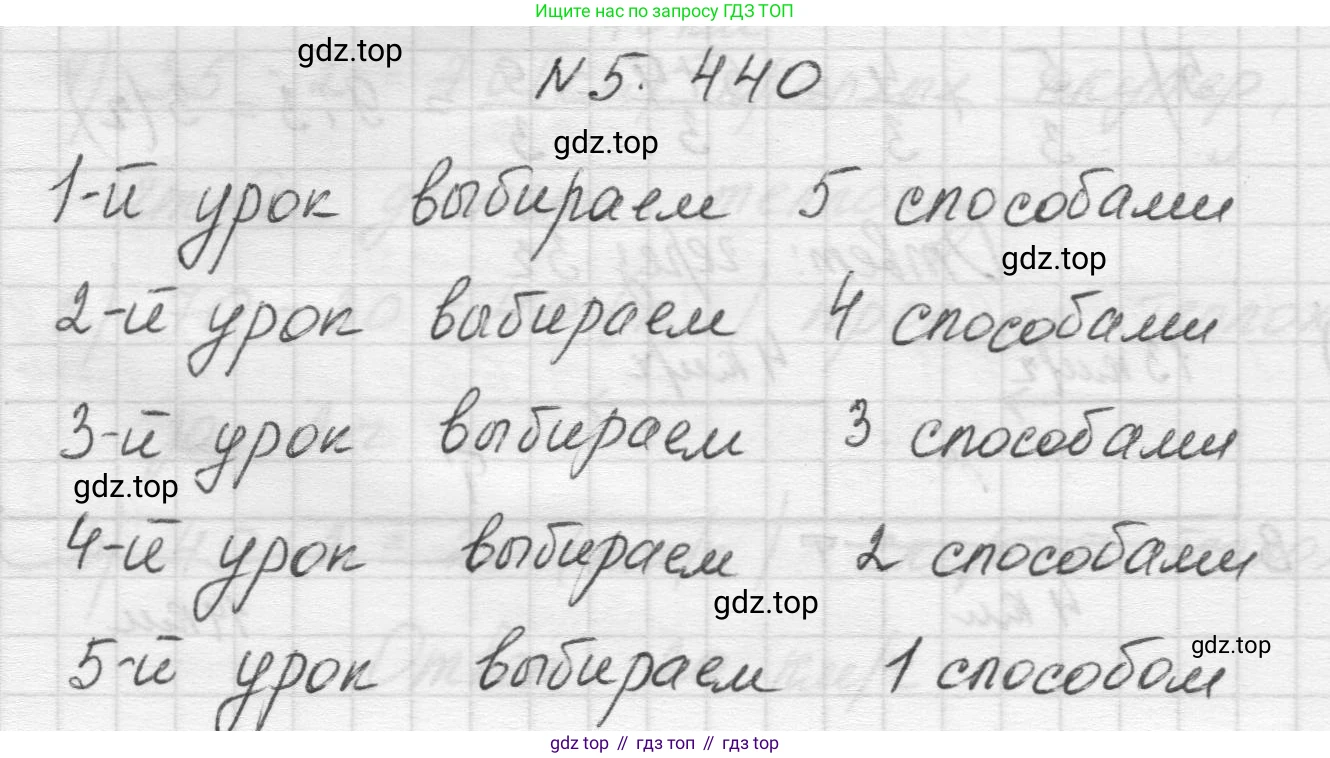 Ищите нас по запросу ГДЗ ТОП
gdz.top
N 5. 440
gdz.top
1-й урок выбираем 5 способами
gdz.top
2-й урок выбираем 4 способами
3-й урок выбираем 3 способами
gdz.top
4-й урок выбираем 2 способами
gdz.top
5-й урок выбираем 1 способом
gdz.top
gdz top // гдз топ // gdz top